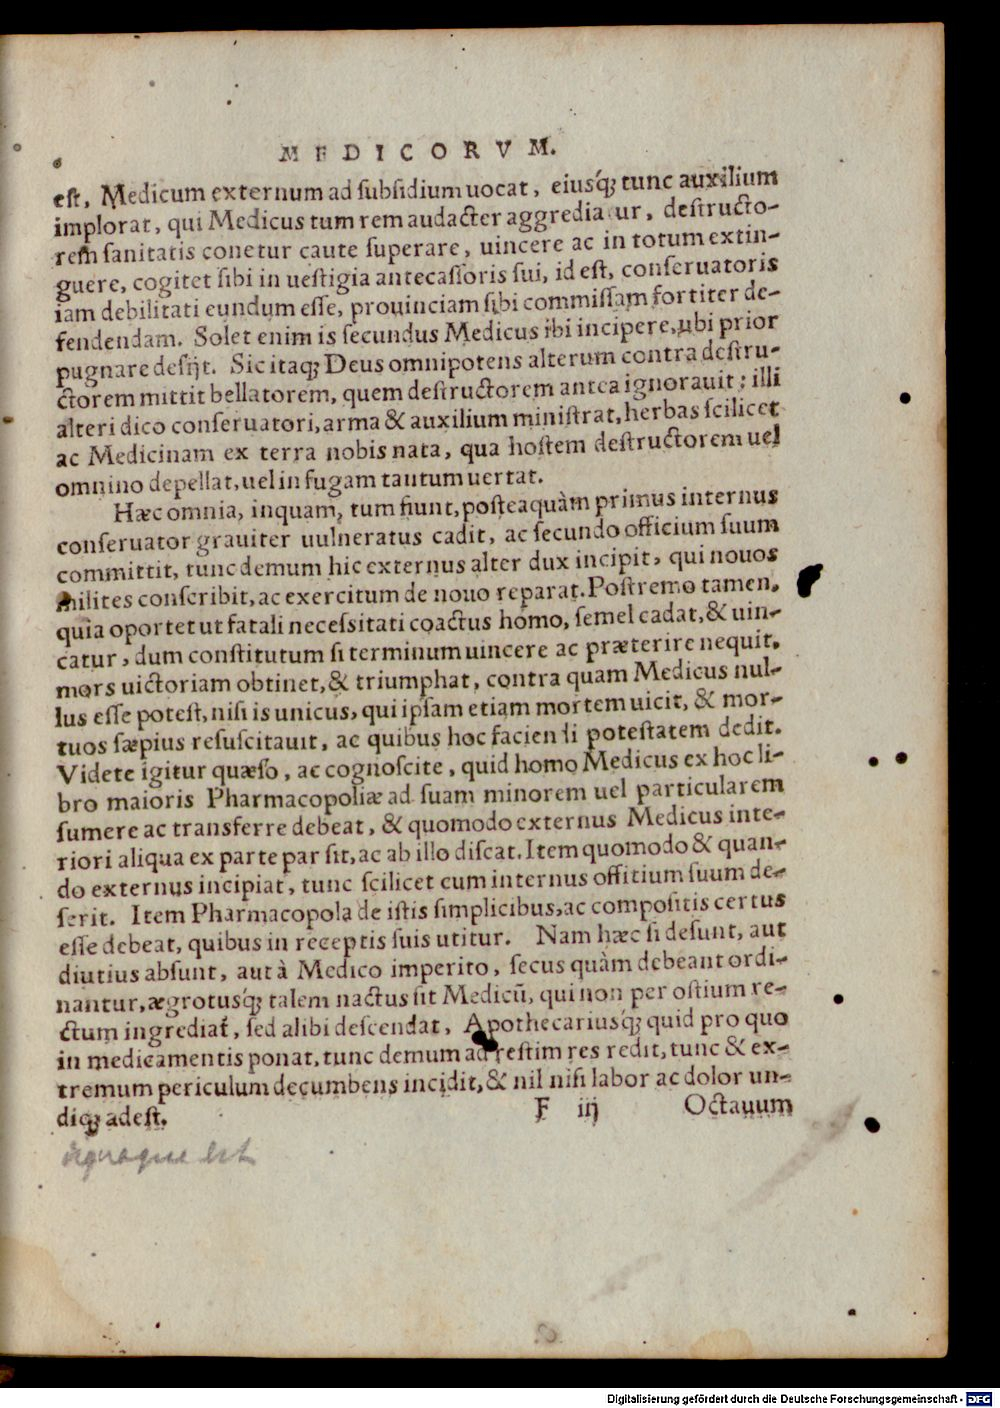 MEDICORVM.
est, Medicum externum ad subsidium uocat, eiusq́; tunc auxilium
implorat, qui Medicus tum rem audacter aggrediatur, destructo-
rem sanitatis conetur caute superare, uincere ac in totum extin-
guere, cogitet sibi in uestigia antecassoris sui, id est, conseruatoris
iam debilitati eundum esse, prouinciam sibi commissam fortiter de-
fendendam. Solet enim is secundus Medicus ibi incipere, ubi prior
pugnare desijt. Sic itaq; Deus omnipotens alterum contra destru-
ctorem mittit bellatorem, quem destructorem antea ignorauit; illi
alteri dico conseruatori, arma & auxilium ministrat, herbas scilicet
ac Medicinam ex terra nobis nata, qua hostem destructorem uel
omnino depellat, uel in fugam tantum uertat.
Hæc omnia, inquam, tum fiunt, posteaquàm primus internus
conseruator grauiter uulneratus cadit, ac secundo officium suum
committit, tunc demum hic externus alter dux incipit, qui nouos
milites conscribit, ac exercitum de nouo reparat. Postremo tamen,
quia oportet ut fatali necessitati coactus homo, semel cadat, & uin-
catur, dum constitutum si terminum uincere ac præterire nequit,
mors uictoriam obtinet, & triumphat, contra quam Medicus nul-
lus esse potest, nisi is unicus, qui ipsam etiam mortem uicit, & mor-
tuos sæpius resuscitauit, ac quibus hoc faciendi potestatem dedit.
Videte igitur quæso, ac cognoscite, quid homo Medicus ex hoc li-
bro maioris Pharmacopoliæ ad suam minorem uel particularem
sumere ac transferre debeat, & quomodo externus Medicus inte-
riori aliqua ex parte par sit, ac ab illo discat. Item quomodo & quan-
do externus incipiat, tunc scilicet cum internus offitium suum de-
serit. Item Pharmacopola de istis simplicibus, ac compositis certus
esse debeat, quibus in receptis suis utitur. Nam hæc si desunt, aut
diutius absunt, aut à Medico imperito, secus quàm debeant ordi-
nantur, ægrotusq́; talem nactus sit Medicū, qui non per ostium re-
ctum ingrediat̃, sed alibi descendat, Apothecariusq́; quid pro quo
in medicamentis ponat, tunc demum ad restim res redit, tunc & ex-
tremum periculum decumbens incidit, & nil nisi labor ac dolor un-
diq; adest.
F iij Octauum
Digitalisierung gefördert durch die Deutsche Forschungsgemeinschaft - DFG